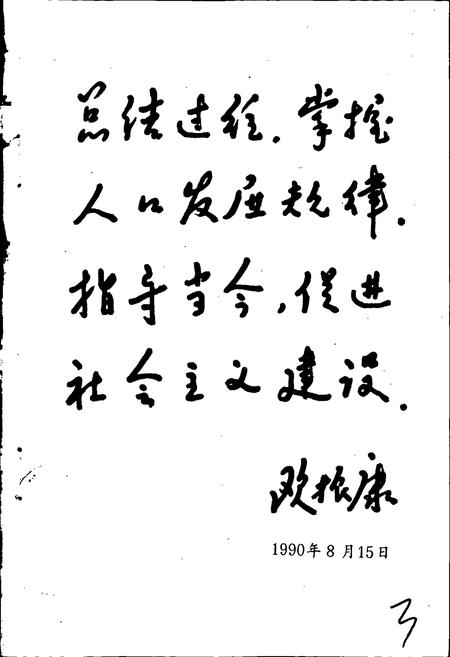 总结过往.掌握
人口发展规律.
指导当今,促进
社会主义建设.
欧振康
1990年8月15日
3